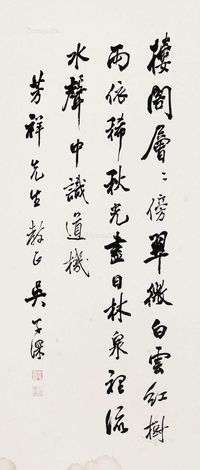 樓閣層〻傍翠微白雲紅樹
兩依稀秋光盡日林泉裡流
水聲中識道機
芳祥先生教正吳子深